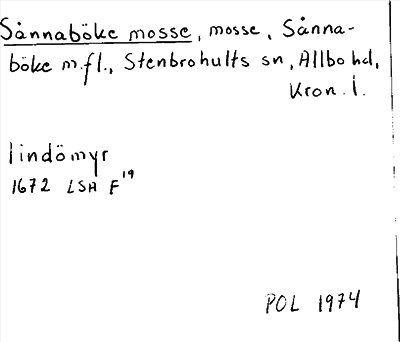 Sånnaböke mosse, mosse, Sånna-
böke m.fl., Stenbrohults sn, Allbo hd,
Kron. l.
lindömyr
1672 LSA F¹⁹
POL 1974